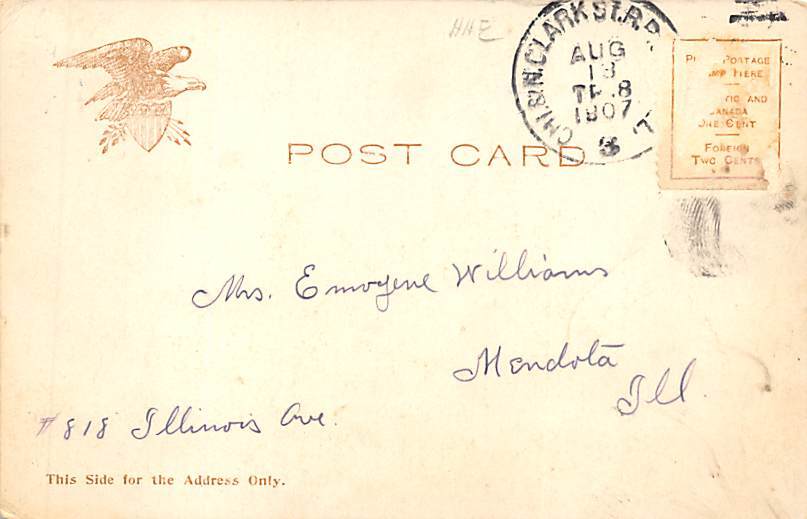 HHE
CHI. & N. CLARK ST. R.P.
AUG
13
TR. 8
1907
POSTAGE
HERE
AND
CANADA
ONE CENT
FOREIGN
TWO CENTS
POST CARD
Mrs. Emogene Williams
Mendota
Ill.
#818 Illinois Ave.
This Side for the Address Only.